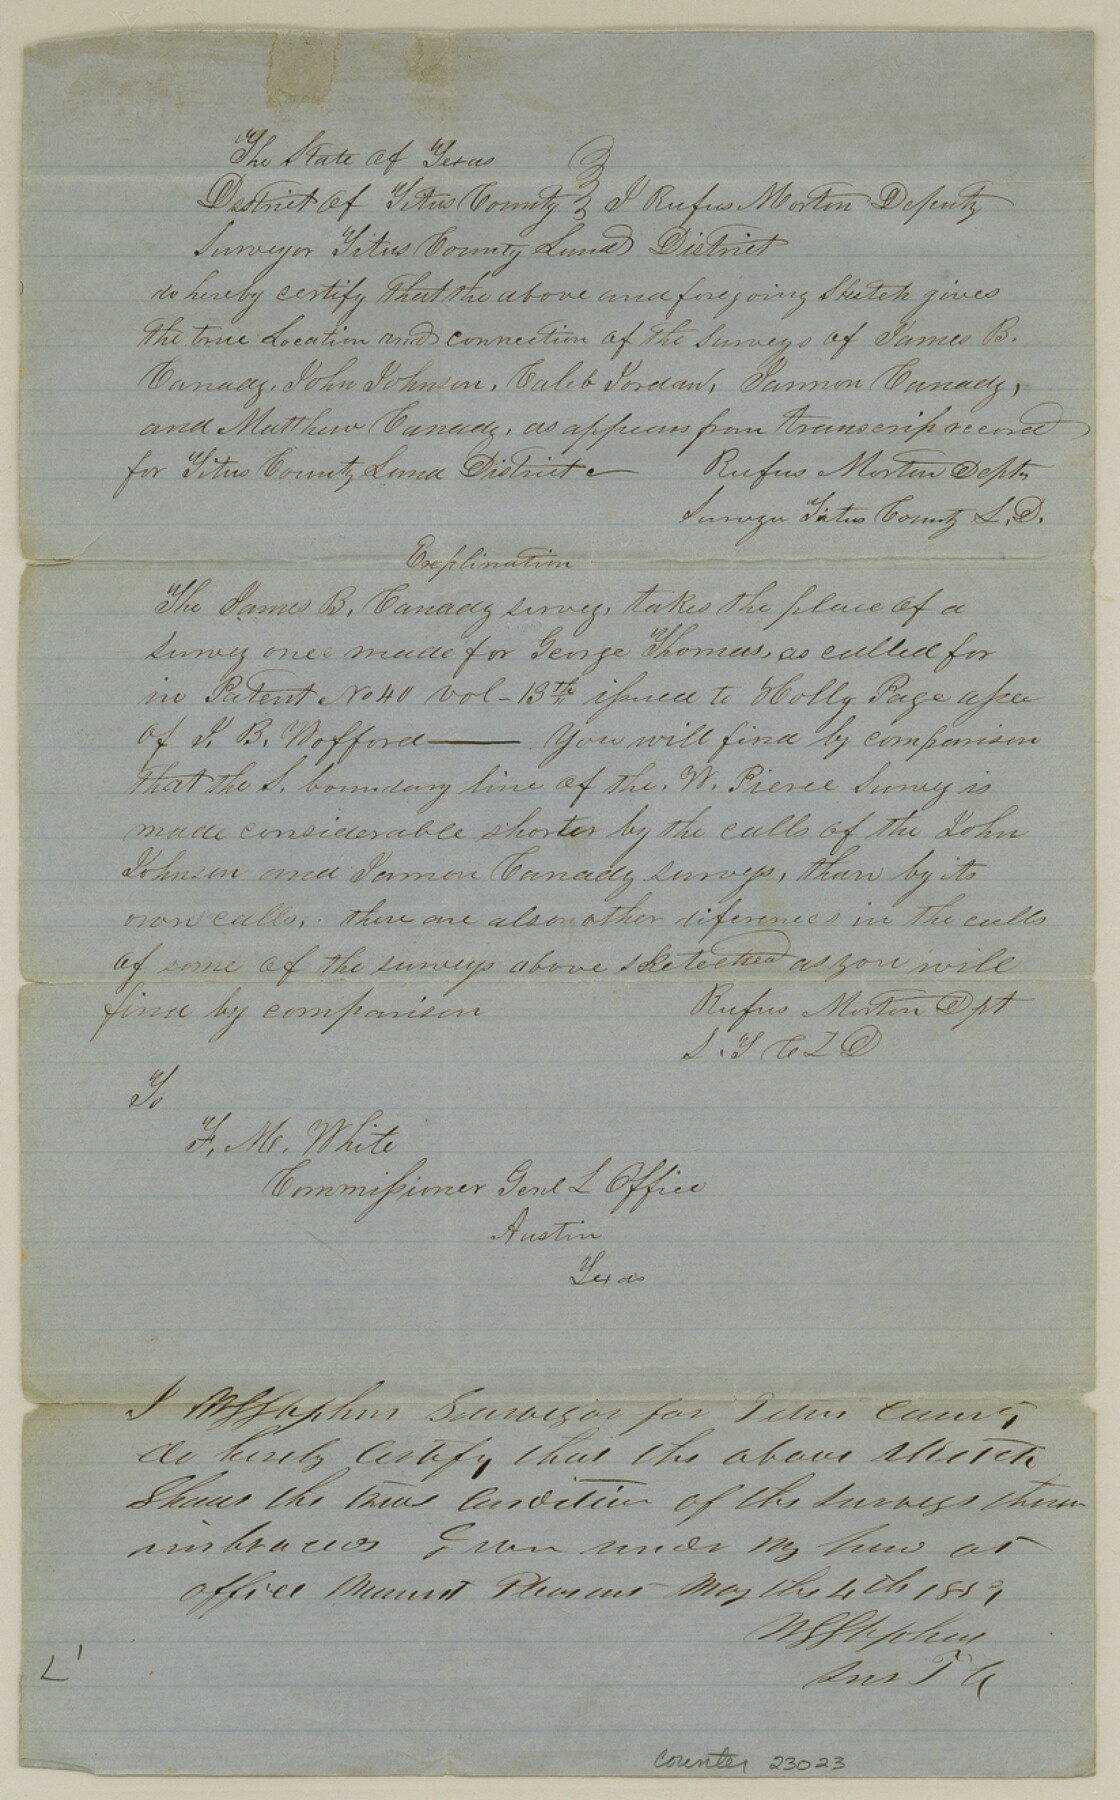 The State of Texas
District of Titus County } I Rufus Morton Deputy
Surveyor Titus County Land District
do hereby certify that the above and foregoing Sketch gives
the true Location and connection of the Surveys of James B.
Canady, John Johnson, Caleb Jordan, Jarmon Canady,
and Matthew Canady, as appears from transcrip record
for Titus County Land District
Rufus Morton Dept
Surveyor Titus County L. D.
Explination
The James B. Canady survey, takes the place of a
survey once made for George Thomas, as called for
in Patent No 40 vol - 13th issued to Holly Page assee
of J. B. Wofford —— You will find by comparison
that the S. boundary line of the W. Pierce Survey is
made considerable shorter by the calls of the John
Johnson and Jarmon Canady surveys, than by its
own calls, there are also other diferences in the calls
of some of the surveys above sketeched as you will
find by comparison
Rufus Morton Dpt
S. T C L D
To
F. M. White
Commissioner Genl L Office
Austin
Texas
I Surveyor for Titus County
do hereby certify that the above sketch
Shows the true condition of the surveys
imbraced Given under my at
office Mount Pleasant May the 4th 1859
Sur T C
L'
counter 23023